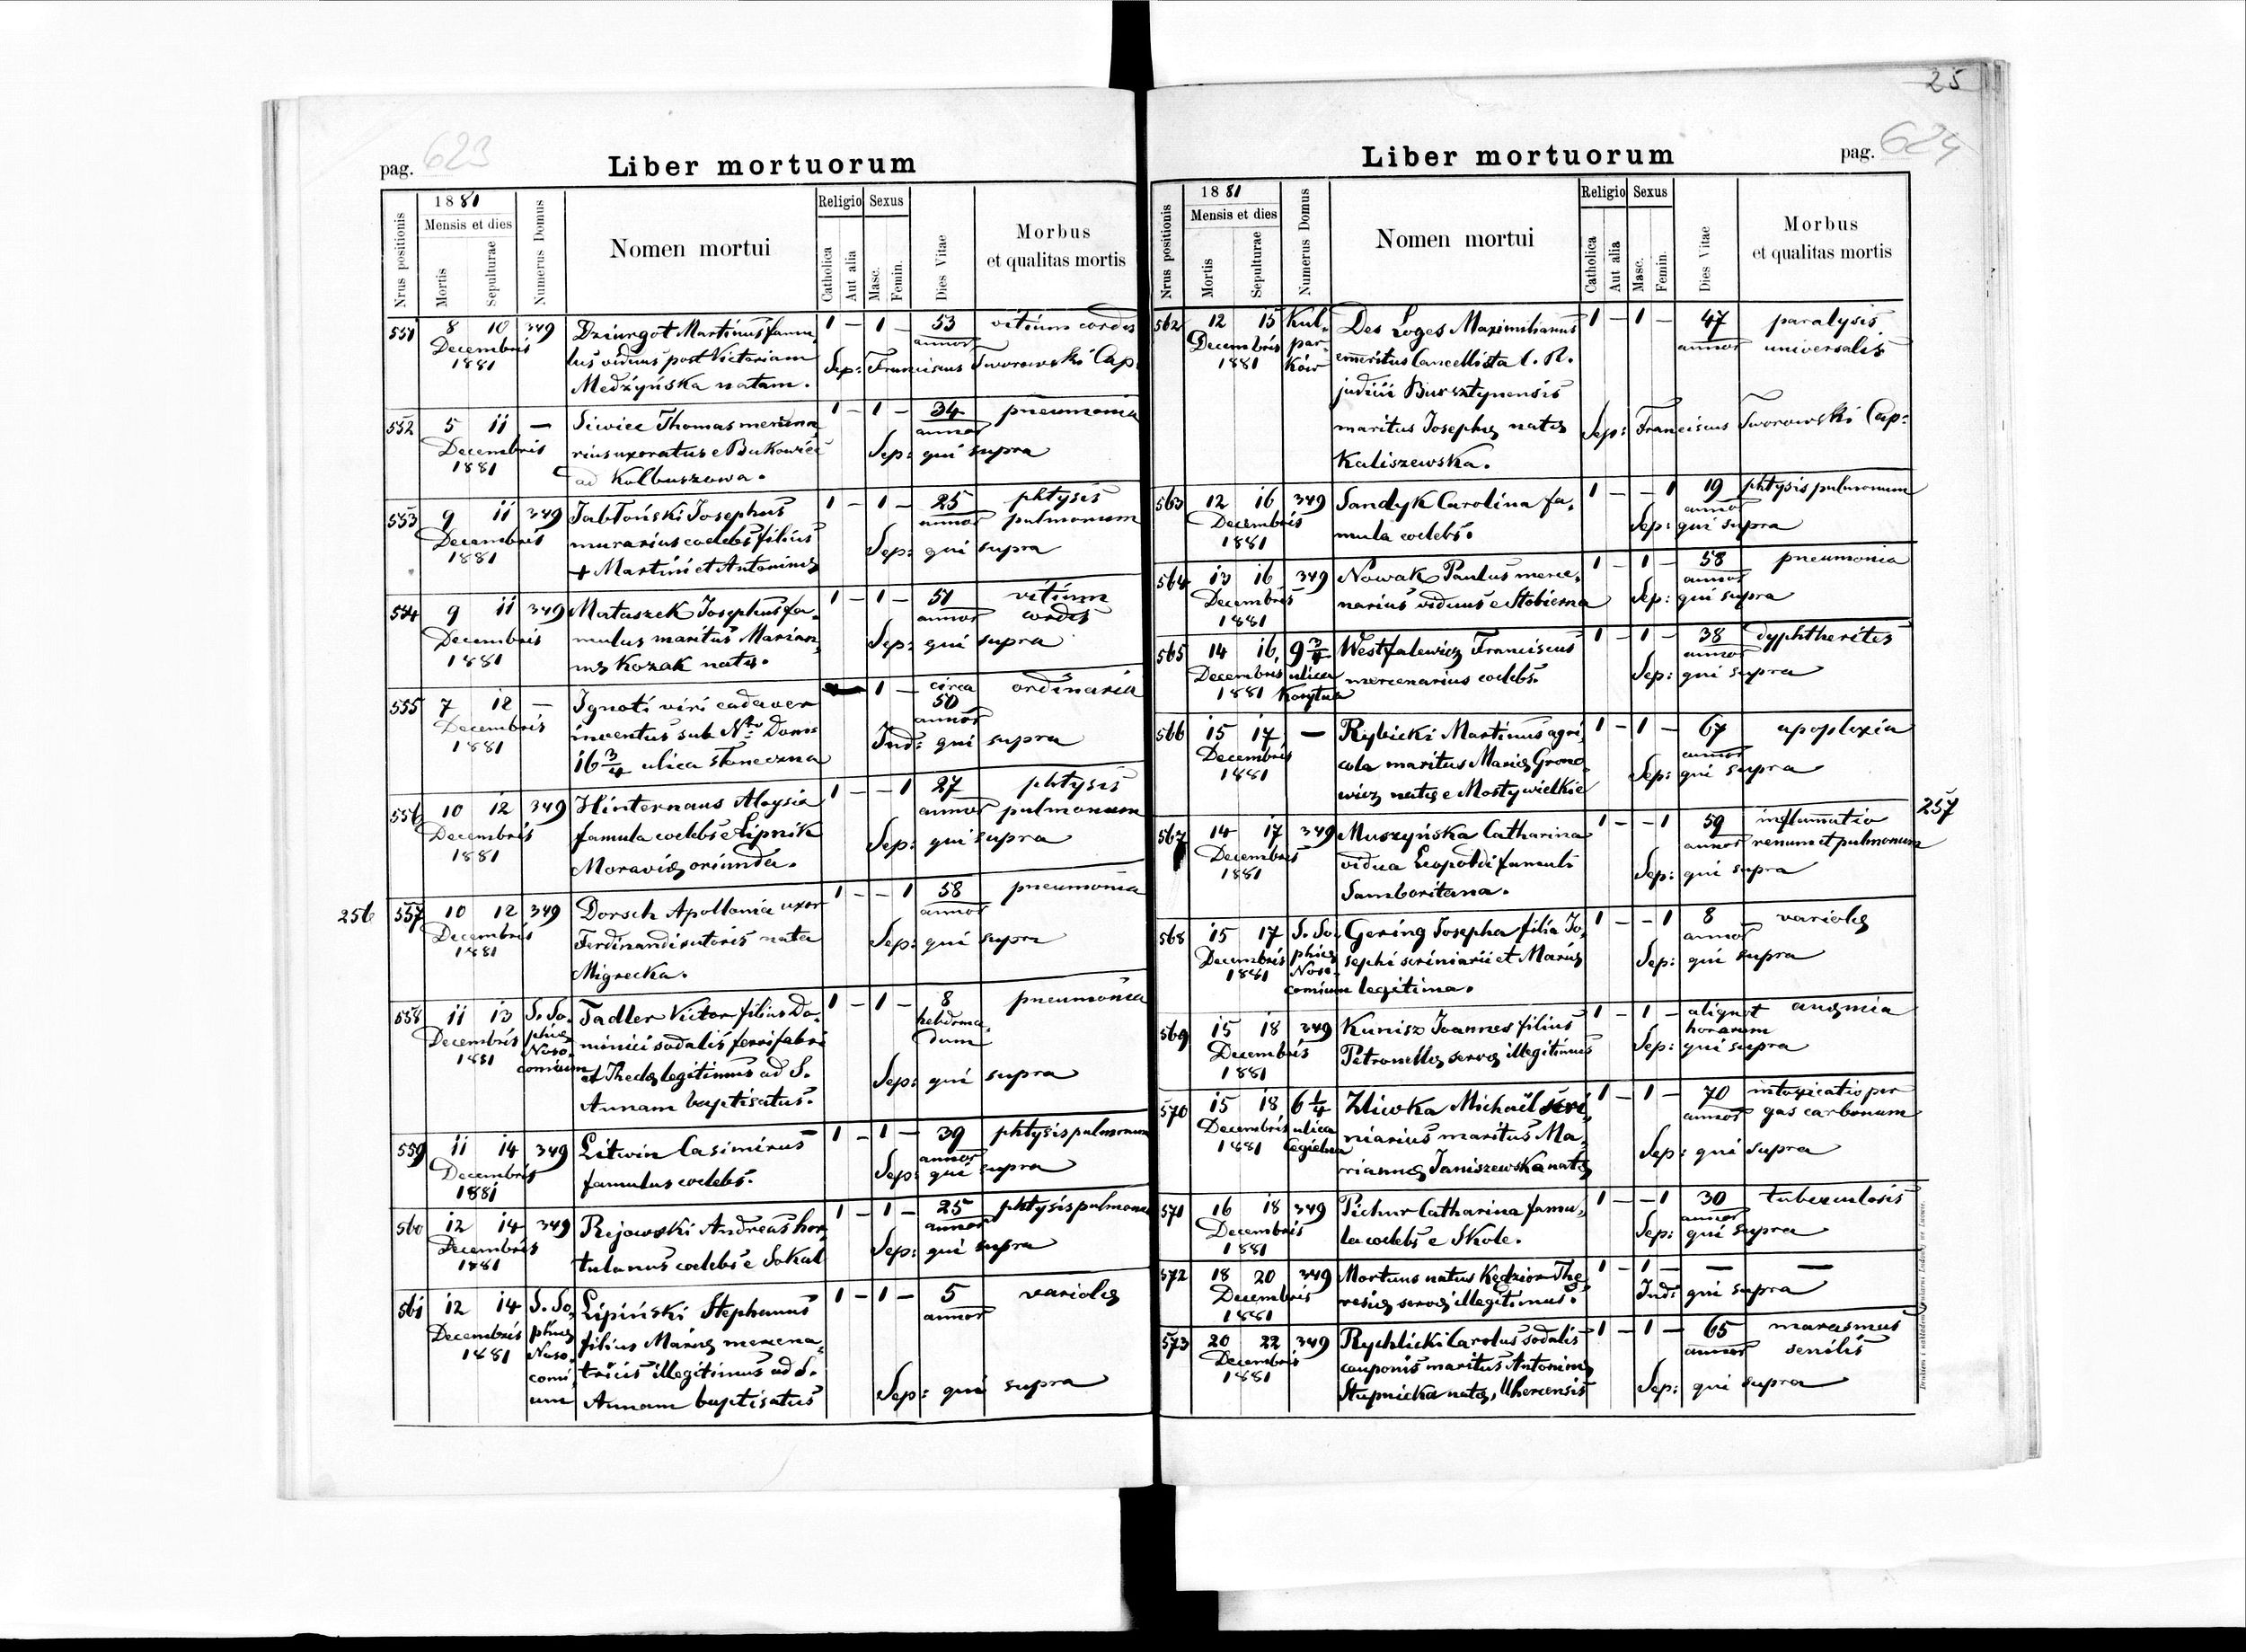 25
pag. 623
Liber mortuorum
Nrus positionis
1881
Mensis et dies
Mortis
Sepulturae
Numerus Domus
Nomen mortui
Religio
Catholica
Aut alia
Sexus
Masc.
Femin.
Dies Vitae
Morbus
et qualitas mortis
551 8 10 349 Dziurgot Martinus famu 1 – 1 – 53 vitium cordis
Decembris lus viduus post Victoriam annor
1881 Medżyńska natam. Sep: Franciscus Tworowski Cap.
552 5 11 — Siwiec Thomas mercena 1 – 1 – 34 pneumonia
Decembris rius uxoratus e Bukowiec annor
1881 ad Kolbuszowa. Sep: qui supra
553 9 11 349 Jabłoński Josephus 1 – 1 – 25 phtysis
Decembris murarius coelebs filius annor pulmonum
1881 + Martini et Antoninę Sep: qui supra
554 9 11 349 Mataszek Josephus fa- 1 – 1 – 51 vitium
Decembris mulus maritus Marian, annor cordis
1881 nę Kozak natę. Sep: qui supra
555 7 12 — Ignoti viri cadaver 1 – circa ordinaria
Decembris inventus sub Nro Doms 50
1881 16 3/4 ulica Słoneczna annor
Ind: qui supra
556 10 12 349 Hinternaus Aloysia 1 – – 1 27 phtysis
Decembris famula coelebs e Lipnik annor pulmonum
1881 Moravię oriunda. Sep: qui supra
256 557 10 12 349 Dorsch Apollonia uxor 1 – – 1 58 pneumonia
Decembris Ferdinandi sutoris nata annor
1881 Migrecka. Sep: qui supra
558 11 13 S. So. Tadler Victor filius Do- 1 – 1 – 8 pneumonia
Decembris phię minici sodalis ferrifabri hebdoma,
1881 Noso- et Theclę legitimus ad S. dum
comium Annam baptisatus. Sep: qui supra
559 11 14 349 Litwin Casimirus 1 – 1 – 39 phtysis pulmonum
Decembris famulus coelebs. annor
1881 Sep: qui supra
560 12 14 349 Rejowski Andreas hor, 1 – 1 – 25 phtysis pulmonu
Decembris tulanus coelebs e Sokal annor
1881 Sep: qui supra
561 12 14 S. So, Lipiński Stephanus 1 – 1 – 5 variolę
Decembris phię filius Marię mercena, annor
1881 Noso- tricis illegitimus ad S.
comi, Annam baptisatus Sep: qui supra
um
Liber mortuorum
pag. 624
Nrus positionis
1881
Mensis et dies
Mortis
Sepulturae
Numerus Domus
Nomen mortui
Religio
Catholica
Aut alia
Sexus
Masc.
Femin.
Dies Vitae
Morbus
et qualitas mortis
562 12 15 Kul- Des Loges Maximilianus 1 – 1 – 47 paralysis
Decembris par- emeritus Cancellista C. R. annor universalis
1881 ków judicii Bursztynensis
maritus Josephę natę Sep: Franciscus Tworowski Cap:
Kaliszewska.
563 12 16 349 Sandyk Carolina fa, 1 – – 1 19 phtysis pulmonum
Decembris mula coelebs. annor
1881 Sep: qui supra
564 13 16 349 Nowak Paulus merce, 1 – 1 – 58 pneumonia
Decembris narius viduus e Stobierna annor
1881 Sep: qui supra
565 14 16 9 3/4 Westfalewicz Franciscus 1 – 1 – 38 dyphtheritis
Decembris ulica mercenarius coelebs. annor
1881 Korytna Sep: qui supra
566 15 17 — Rybicki Martinus agri, 1 – 1 – 67 apoplexia
Decembris cola maritus Marię Grono annor
1881 wicz natę e Mosty wielkie Sep: qui supra
257
567 14 17 349 Muszyńska Catharina 1 – – 1 59 inflamatio
Decembris vidua Leopoldi famuli annor renum et pulmonum
1881 Samboritana. Sep: qui supra
568 15 17 S. So. Gering Josepha filia Jo, 1 – – 1 8 variolę
Decembris phię sephi scriniarii et Marię annor
1881 Noso- comium legitima. Sep: qui supra
569 15 18 349 Kunisz Joannes filius 1 – 1 – aliquot anęmia
Decembris Petronellę servę illegitimus horarum
1881 Sep: qui supra
570 15 18 6 1/4 Zliwka Michaël scri, 1 – 1 – 70 intoxicatio per
Decembris ulica niarius maritus Ma, annor gas carbonum
1881 Cegielna riannę Janiszewska natę Sep: qui supra
571 16 18 349 Pichur Catharina famu, 1 – – 1 30 tuberculosis
Decembris la coelebs e Skole. annor
1881 Sep: qui supra
572 18 20 349 Mortuus natus Kędzior The 1 – 1 – — —
Decembris resię servę illegitimus. Ind: qui supra
1881
573 20 22 349 Rychlicki Carolus sodalis 1 – 1 – 65 marasmus
Decembris cauponis maritus Antoninę annor senilis
1881 Stupnicka natę, Uhercensis Sep: qui supra